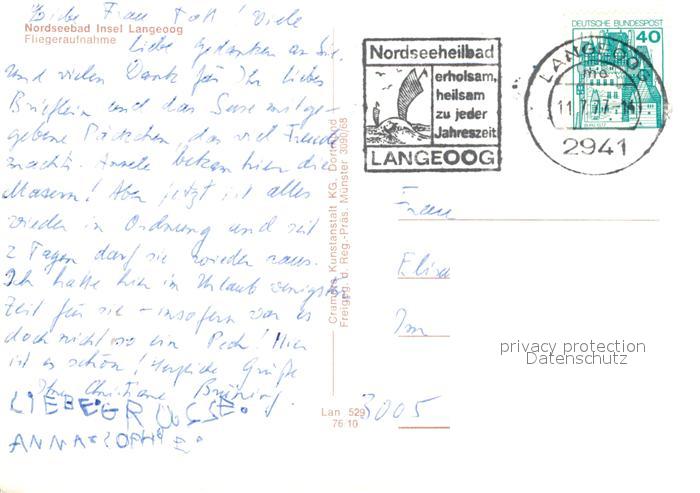 Liebe Frau Voß! Viele
Nordseebad Insel Langeoog
Fliegeraufnahme
liebe Gedanken an Sie,
und vielen Dank für Ihr liebes
Brieflein und das Suse mitge-
gebene Päckchen, das viel Freude
macht. bekam hier die
Masern! Aber jetzt ist alles
wieder in Ordnung und seit
2 Tagen darf sie wieder raus.
Ich hatte hier im Urlaub wenigstens
Zeit für sie – insofern war es
doch nicht so ein Pech! Hier
ist es schön! Herzliche Grüße
Ihre Christiane
LIEBE GRÜSSE.
ANNA SOPHIE.
Cramers Kunstanstalt KG. Dortmund
Freigeg. d. Reg.-Präs. Münster 3090/68
Lan 529
76 10
Nordseeheilbad
erholsam,
heilsam
zu jeder
Jahreszeit
LANGEOOG
DEUTSCHE BUNDESPOST
40
LANGEOOG
11.7.77-14
2941
Frau
Elisa
Im
privacy protection
Datenschutz
3005